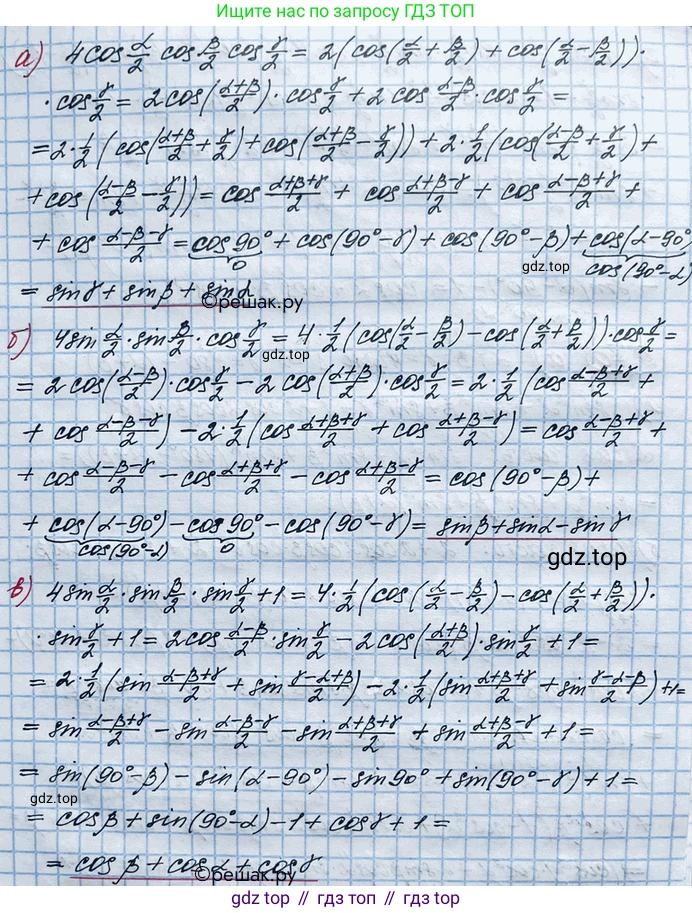 Ищите нас по запросу ГДЗ ТОП
а) 4cos α/2 cos β/2 cos γ/2 = 2(cos(α/2 + β/2) + cos(α/2 − β/2))·
· cos γ/2 = 2cos((α+β)/2) · cos γ/2 + 2cos (α−β)/2 · cos γ/2 =
= 2 · 1/2 (cos((α+β)/2 + γ/2) + cos((α+β)/2 − γ/2)) + 2 · 1/2 (cos((α−β)/2 + γ/2) +
+ cos((α−β)/2 − γ/2)) = cos (α+β+γ)/2 + cos (α+β−γ)/2 + cos (α−β+γ)/2 +
+ cos (α−β−γ)/2 = cos 90° + cos(90° − γ) + cos(90° − β) + cos(α − 90°)
gdz.top
0 cos(90° − α)
= sin γ + sin β + sin α
©reшак.ру
б) 4sin α/2 · sin β/2 · cos γ/2 = 4 · 1/2 (cos(α/2 − β/2) − cos(α/2 + β/2)) · cos γ/2 =
gdz.top
= 2cos((α−β)/2) · cos γ/2 − 2cos((α+β)/2) · cos γ/2 = 2 · 1/2 (cos (α−β+γ)/2 +
+ cos (α−β−γ)/2) − 2 · 1/2 (cos (α+β+γ)/2 + cos (α+β−γ)/2) = cos (α−β+γ)/2 +
+ cos (α−β−γ)/2 − cos (α+β+γ)/2 − cos (α+β−γ)/2 = cos(90° − β) +
+ cos(α − 90°) − cos 90° − cos(90° − γ) = sin β + sin α − sin γ
cos(90° − α) 0
gdz.top
в) 4sin α/2 · sin β/2 · sin γ/2 + 1 = 4 · 1/2 (cos(α/2 − β/2) − cos(α/2 + β/2)) ·
· sin γ/2 + 1 = 2cos (α−β)/2 · sin γ/2 − 2cos((α+β)/2) · sin γ/2 + 1 =
= 2 · 1/2 (sin (α−β+γ)/2 + sin (γ−α+β)/2) − 2 · 1/2 (sin (α+β+γ)/2 + sin (γ−α−β)/2) + 1 =
= sin (α−β+γ)/2 − sin (α−β−γ)/2 − sin (α+β+γ)/2 + sin (α+β−γ)/2 + 1 =
= sin(90° − β) − sin(α − 90°) − sin 90° + sin(90° − γ) + 1 =
gdz.top
= cos β + sin(90° − α) − 1 + cos γ + 1 =
= cos β + cos α + cos γ
©reшак.ру
gdz.top // гдз топ // гдз.топ